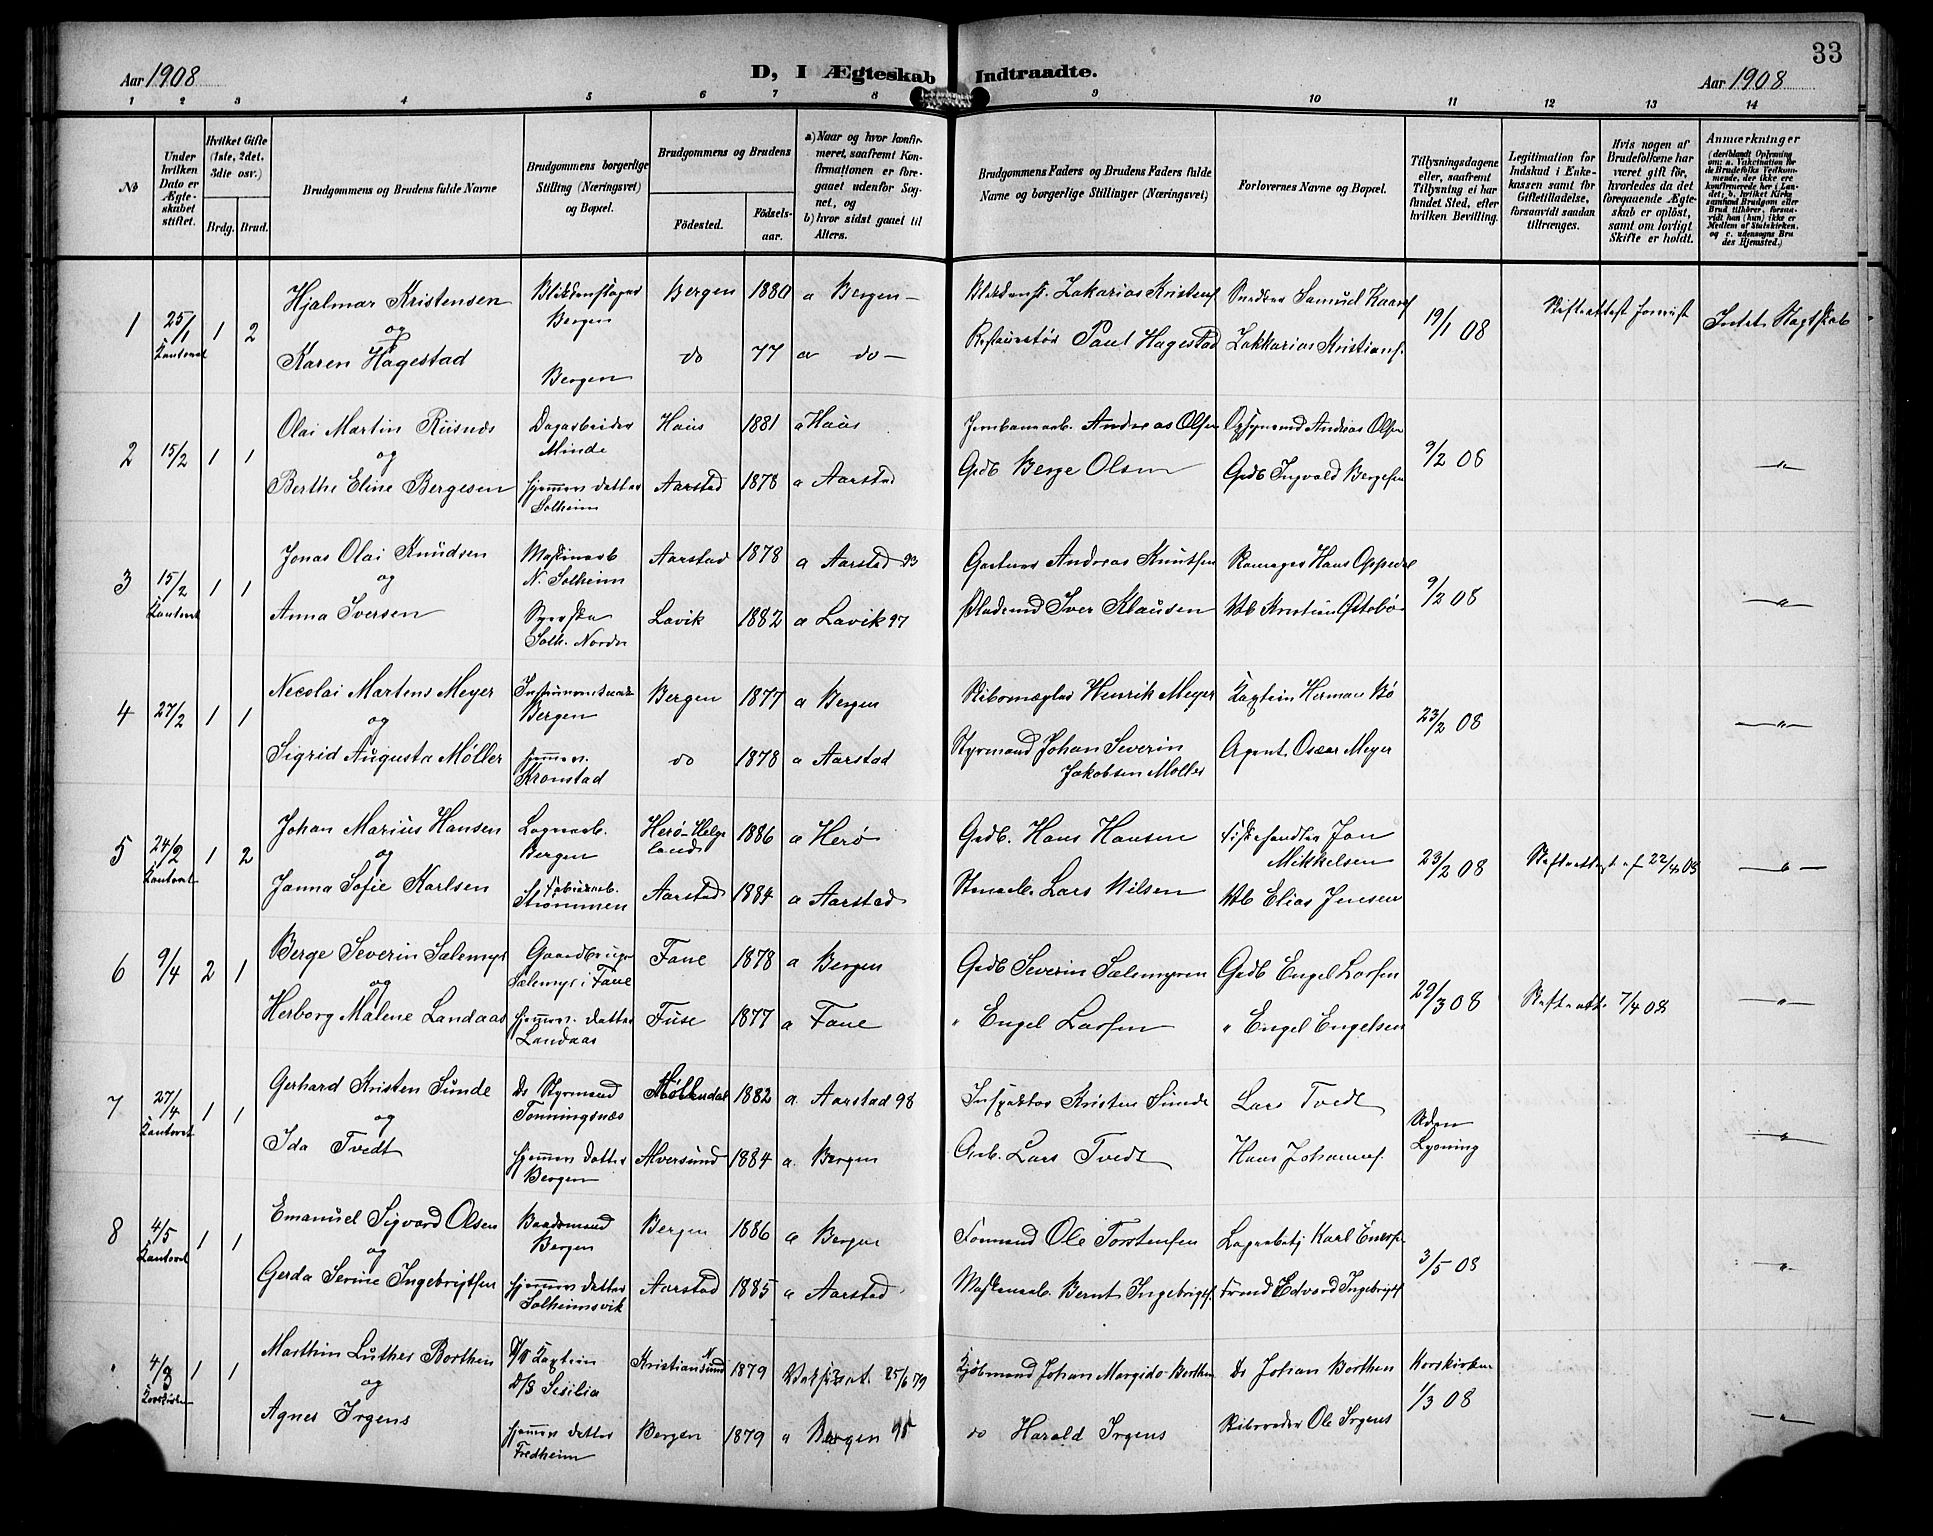 33
Aar 1908
D, I Ægteskab Indtraadte.
Aar 1908
1 2 3 4 5 6 7 8 9 10 11 12 13 14
No
Under hvilken Dato er Ægteskabet stiftet.
Hvilket Gifte (1ste, 2det, 3die osv.)
Brdg. Brud.
Brudgommens og Brudens fulde Navne
Brudgommens borgerlige Stilling (Næringsvei) og Bopæl.
Brudgommens og Brudens
Fødested.
Fødselsaar.
a) Naar og hvor konfirmeret, saafremt Konfirmationen er foregaaet udenfor Sognet, og
b) hvor sidst gaaet til Alters.
Brudgommens Faders og Brudens Faders fulde Navne og borgerlige Stillinger (Næringsvei)
Forlovernes Navne og Bopæl.
Tillysningsdagene eller, saafremt Tillysning ei har fundet Sted, efter hvilken Bevilling.
Legitimation for Indskud i Enkekassen samt for Giftetilladelse, forsaavidt saadan tiltrænges.
Hvis nogen af Brudefolkene har været gift før, hvorledes da det foregaaende Ægteskab er opløst, samt om lovligt Skifte er holdt.
Anmærkninger
(deriblandt Oplysning om: a. Vakcination for de Brudefolks Vedkommende, der ikke ere konfirmerede her i Landet; b. hvilket Kirkesamfund Brudgom eller Brud tilhører, forsaavidt han (hun) ikke er Medlem af Statskirken, og c. udensogns Brudes Hjemsted.)
1 25/1 1 2 Hjalmar Kristensen Bergen Bergen 1880 a Bergen Zakarias Kristens. Samuel 19/1 08 Skifteattest Intet Slægtskab
og
Karen Hagestad Bergen do 77 a do Paul Hagestad Zakkarias Kristians.
2 15/2 1 1 Olai Martin Riisnæs Dagarbeider Minde Haus 1881 a Haus Andreas Olsen Opsynsmd Andreas Olsen 9/2 08 "
og
Berthe Eline Bergesen hjemmev. datter Solheim Aarstad 1878 a Aarstad Gdb Berge Olsen Gdb Ingvald Bergesen
3 15/2 1 1 Jonas Olai Knudsen Maskinarb N. Solheim Aarstad 1878 a Aarstad 93 Gartner Andreas Knutsen Hans Oppedal 9/2 08 "
og
Anna Iversen Syerske Solh. Nordre Lavik 1882 a Lavik 97 Pladsmd Iver Klausen Kristian Østebø
4 27/2 1 1 Necolai Martens Meyer Bergen Bergen 1877 a Bergen Skibsmægler Henrik Meyer Kaptein Herman Bö 23/2 08 "
og
Sigrid Augusta Møller hjemmev. Kronstad do 1878 a Aarstad Styrmand Johan Severin Jakobsen Møller Agent. Oscar Meyer
5 24/2 1 2 Johan Marius Hansen Bergen Herø-Helgeland 1886 a Herø Gdb. Hans Hansen Fiskehandler Jon Mikkelsen 23/2 08 Skifteattest af 22/4 08 "
og
Janna Sofie Karlsen Fabrikarb. Strømmen Aarstad 1884 a Aarstad Lars Nilsen Elias Jensen
6 9/4 2 1 Berge Severin Sælemyr Gaardbruger Sælemyr i Fane Fane 1878 a Bergen Gdb Severin Sælemyren Gdb Engel Larsen 29/3 08 Skifteatt. 7/4 08 "
og
Herborg Malene Landaas hjemmev. datter Landaas Fuse 1877 a Fane " Engel Larsen " Engel Engelsen
7 27/4 1 1 Gerhard Kristen Sunde Styrmand Tonningsnæs Møllendal 1882 a Aarstad 98 Inspektør Kristen Sunde Lars Tvedt Uden Lysning "
og
Ida Tvedt hjemmev. datter Bergen Alversund 1884 a. Bergen Arb. Lars Tvedt Hans Johannes.
8 4/5 1 1 Emanuel Sigvard Olsen Baadsmand Bergen Bergen 1886 a Bergen Formand Ole Torstensen Karl 3/5 08 "
og
Gerda Serine Ingebrigtsen hjemmev. datter Solheimsvik Aarstad 1885 a Aarstad Maskinarb. Bernt Ingebrigts. Edvard Ingebrigts
4/3 Korskirken 1 1 Marthin Luther Borthen Kaptein D/S Sesilia Kristiansund N 1879 25/6 79 Kjøbmand Johan Margido Borthen Ds Johan Borthen Korskirken 1/3 08 "
og
Agnes Irgens hjemmev. datter Fredheim Bergen 1879 a Bergen 95 do Harald Irgens Skibsreder Ole Irgens